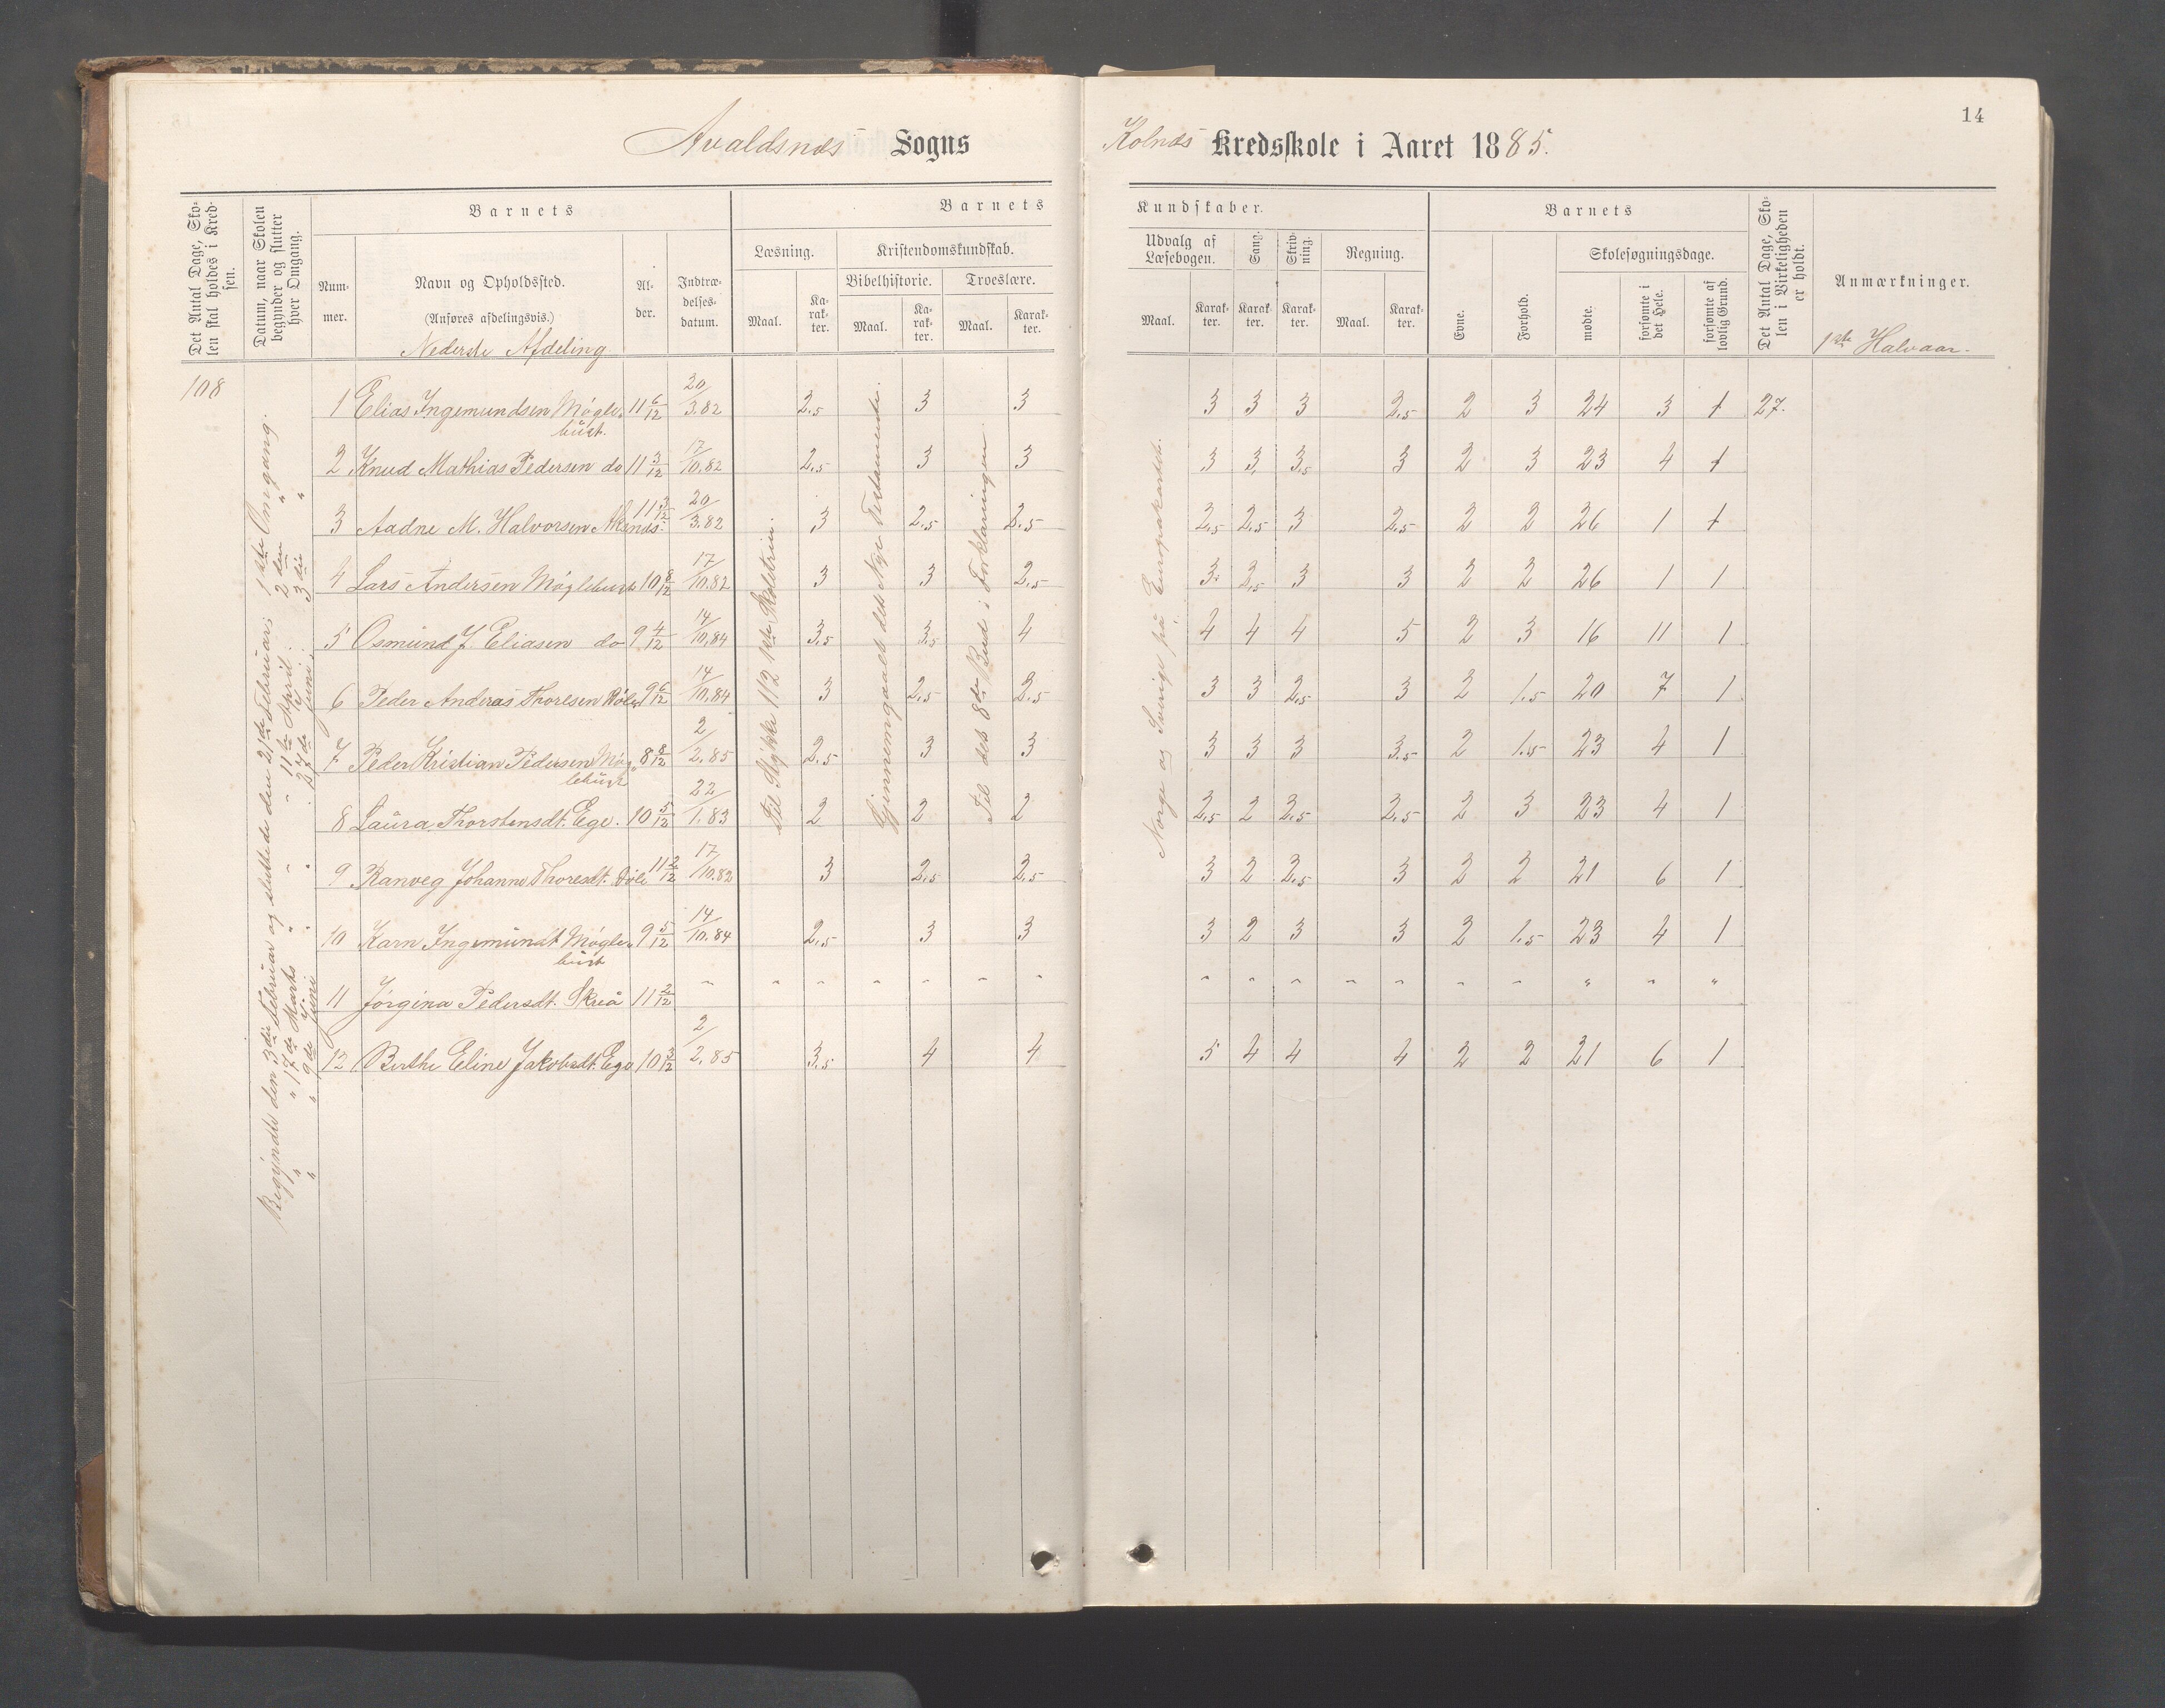 14
Avaldsnæs Sogns
Kolnæs Kredsskole i Aaret 1885.
Det Antal Dage, Sko-
len skal holdes i Kred-
sen.
Datum, naar Skolen
begynder og slutter
hver Omgang.
Barnets
Num-
mer.
Navn og Opholdssted.
(Anføres afdelingsvis.)
Nederste Afdeling
Al-
der.
Indtræ-
delses-
datum.
Barnets
Læsning.
Maal.
Ka-
rak-
ter.
Kristendomskundskab.
Bibelhistorie.
Maal.
Ka-
rak-
ter.
Troeslære.
Maal.
Karak-
ter.
Kundskaber.
Udvalg af
Læsebogen.
Maal.
Karak-
ter.
Sang.
Karak-
ter.
Skriv-
ning.
Karak-
ter.
Regning.
Maal.
Karak-
ter.
Barnets
Evne.
Forhold.
Skolesøgningsdage.
mødte.
forsømte i
det Hele.
forsømte af
lovlig Grund.
Det Antal Dage, Sko-
len i Virkeligheden
er holdt.
Anmærkninger.
1ste Halvaar.
108
Begyndte den 3die Februar og sluttede den 21de Februar; 1ste Omgang.
" 17de Marts " " 11te April. 2den "
" 9de Juni " " 27de Juni. 3die "
Til Stykke 112 1ste Skoletrin.
Gjennemgaaet det Nye Testamente.
Til det 8de Bud i Forklaringen.
Norge og Sverige på Europakartet.
1 Elias Ingemundsen Møgle- 11 6/12 20/3.82 2,5 3 3 3 3 3 2,5 2 3 24 3 1 27.
büst.
2 Knud Mathias Pedersen do 11 3/12 17/10.82 2,5 3 3 3 3 3,5 3 2 3 23 4 1
3 Aadne M. Halvorsen 11 3/12 20/3.82 3 2,5 2,5 2,5 2,5 3 2,5 2 2 26 1 1
4 Lars Andersen Møglebust 10 8/12 17/10.82 3 3 2,5 3 2,5 3 3 2 2 26 1 1
5 Osmund J. Eliasen do 9 4/12 14/10.84 3,5 3,5 4 4 4 4 5 2 3 16 11 1
6 Peder Andreas Thorlsen 9 6/12 14/10.84 3 2,5 2,5 3 3 2,5 3 2 1,5 20 7 1
7 Peder Kristian Pedersen Møg- 8 8/12 2/2.85 2,5 3 3 3 3 3 3,5 2 1,5 23 4 1
lebust
8 Laura Thorstensdt. Ege. 10 5/12 22/1.83 2 2 2 2,5 2 2,5 2,5 2 3 23 4 1
9 Ranveg Johanne Thoresdt. 11 2/12 17/10.82 3 2,5 2,5 3 2 2,5 3 2 2 21 6 1
10 Karn Ingemundt Møgle- 9 5/12 14/10.84 2,5 3 3 3 2 3 3 2 1,5 23 4 1
büst
11 Jørgina Pedersdt. Skreå 11 2/12 " " " " " " " " " " " " " " " " "
12 Berthe Eline Jakobsdt. Ege 10 3/12 2/2.85 3,5 4 4 5 4 4 4 2 2 21 6 1